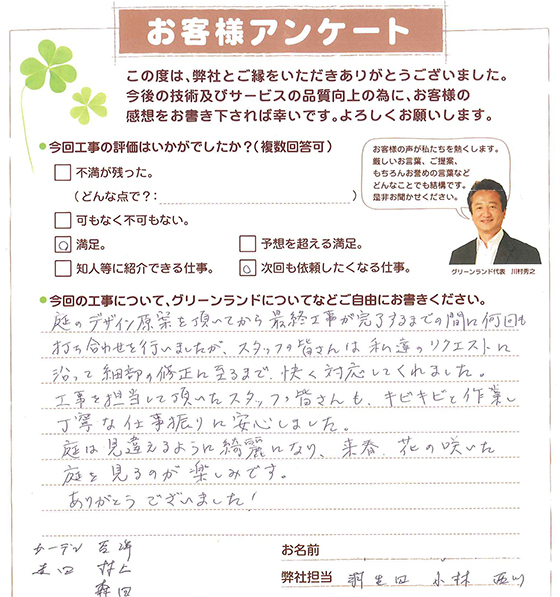 お客様アンケート
この度は、弊社とご縁をいただきありがとうございました。
今後の技術及びサービスの品質向上の為に、お客様の
感想をお書き下されば幸いです。よろしくお願いします。
今回工事の評価はいかがでしたか?(複数回答可)
不満が残った。
(どんな点で?: )
可もなく不可もない。
満足。
予想を超える満足。
知人等に紹介できる仕事。
次回も依頼したくなる仕事。
お客様の声が私たちを熱くします。
厳しいお言葉、ご提案、
もちろんお誉めの言葉など
どんなことでも結構です。
是非お聞かせください。
グリーンランド代表 川村秀之
今回の工事について、グリーンランドについてなどご自由にお書きください。
庭のデザイン原案を頂いてから最終工事が完了するまでの間に何回も
打ち合わせを行いましたが、スタッフの皆さんは私達のリクエストに
沿って細部の修正に至るまで、快く対応してくれました。
工事を担当して頂いたスタッフの皆さんも、キビキビと作業し
丁寧な仕事振りに安心しました。
庭は見違えるように綺麗になり、来春、花の咲いた
庭を見るのが楽しみです。
ありがとうございました!
ガーデン
村上
森田
お名前
弊社担当 羽生田 小林 西川